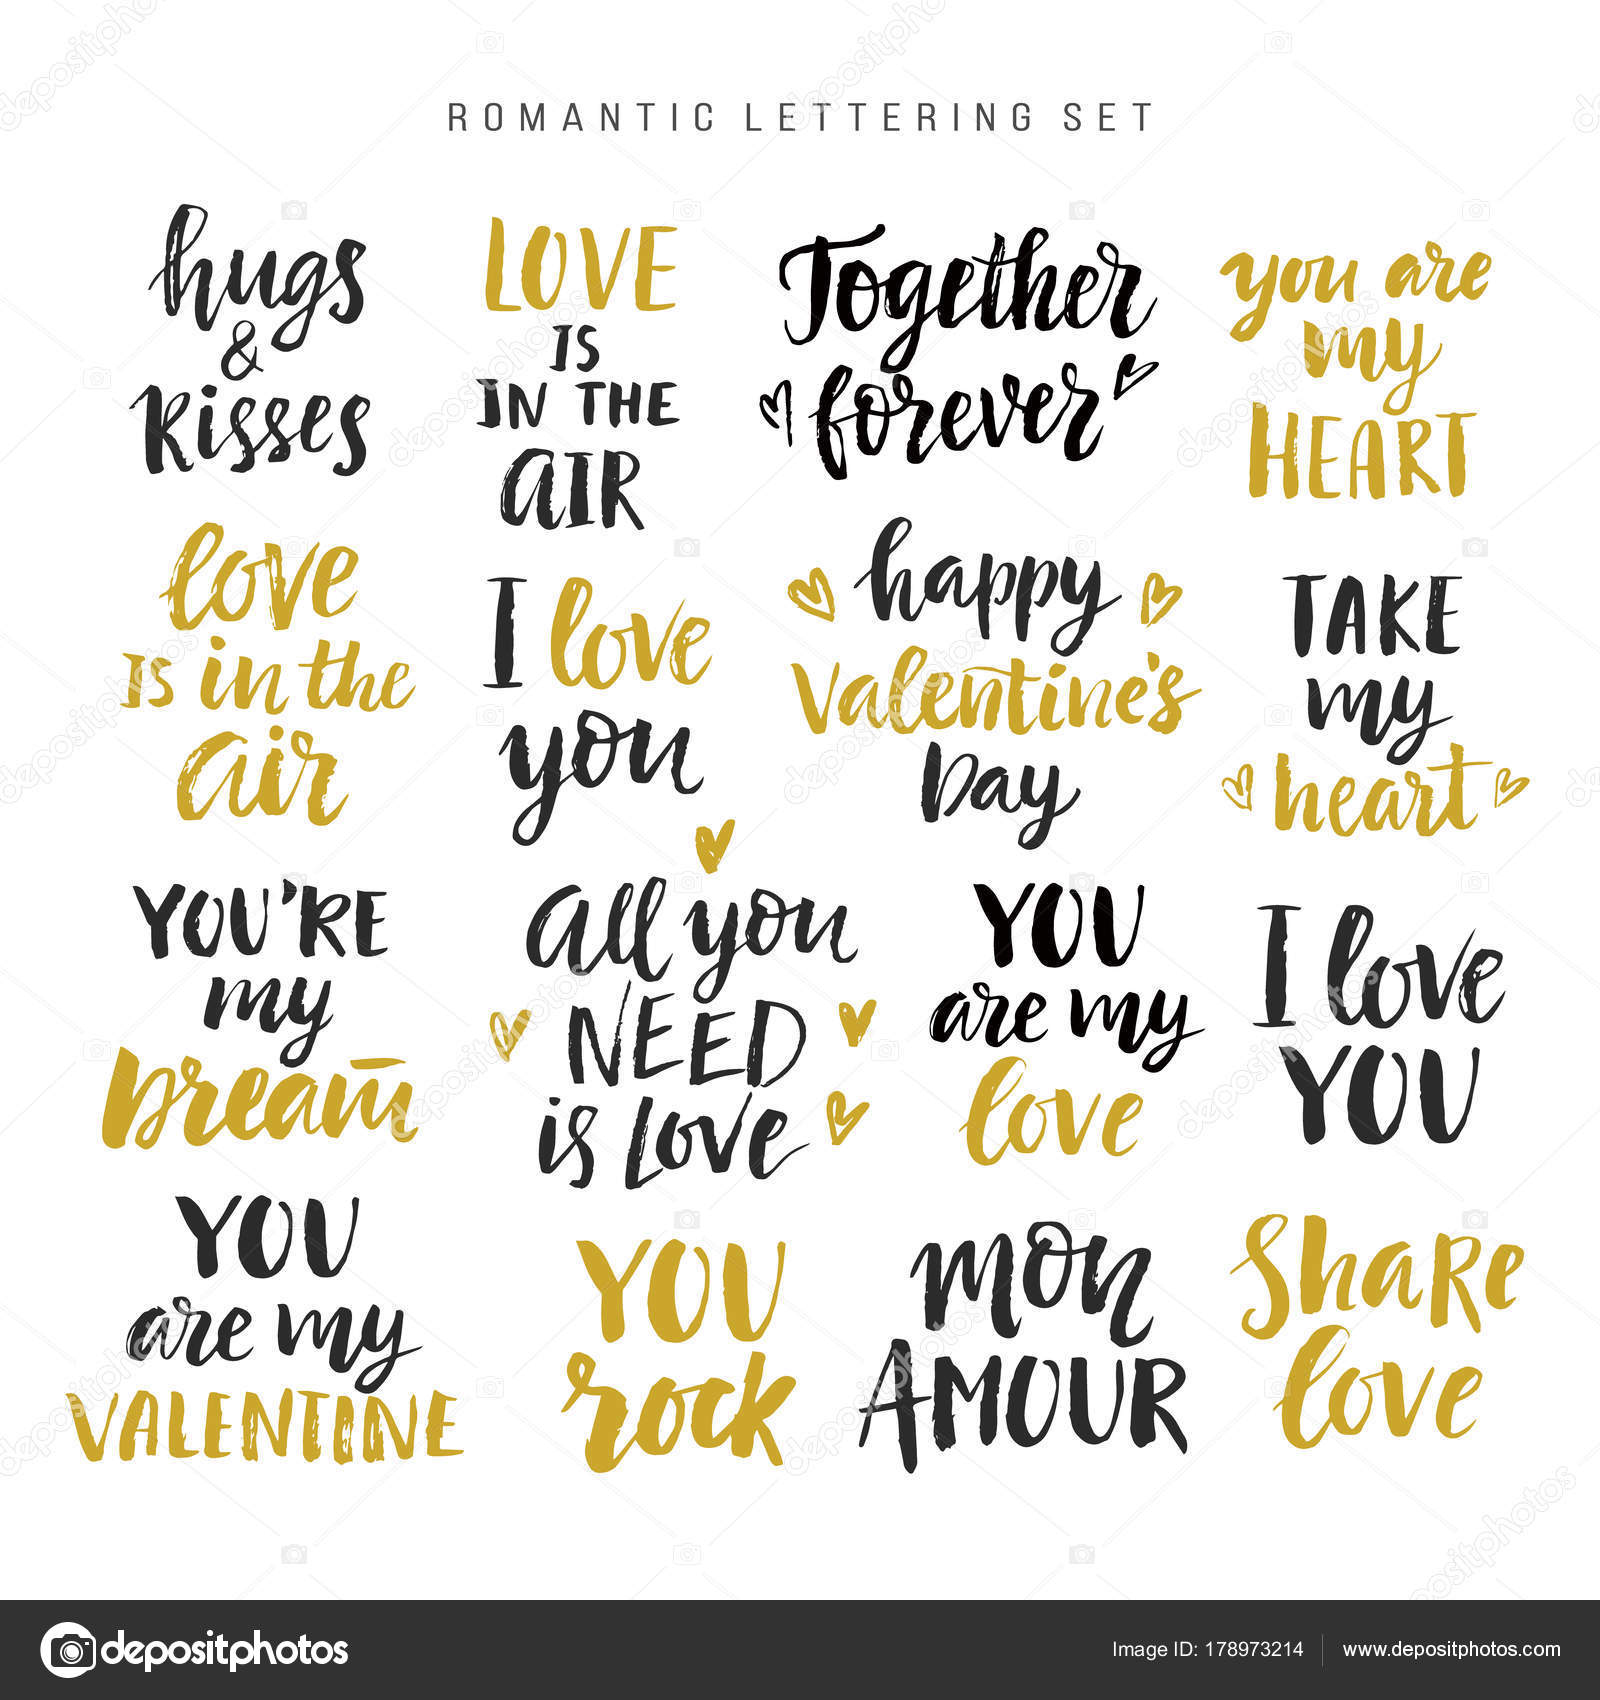 ROMANTIC LETTERING SET
hugs
&
Kisses
LOVE
IS
IN THE
AIR
Together
forever
you are
my
HEART
love
is in the
air
I love
you
happy
Valentine's
Day
TAKE
my
heart
YOU'RE
my
Dream
all you
NEED
is Love
YOU
are my
love
I love
YOU
YOU
are my
VALENTINE
YOU
rock
mon
AMOUR
ShaRe
love
depositphotos
Image ID: 178973214
www.depositphotos.com